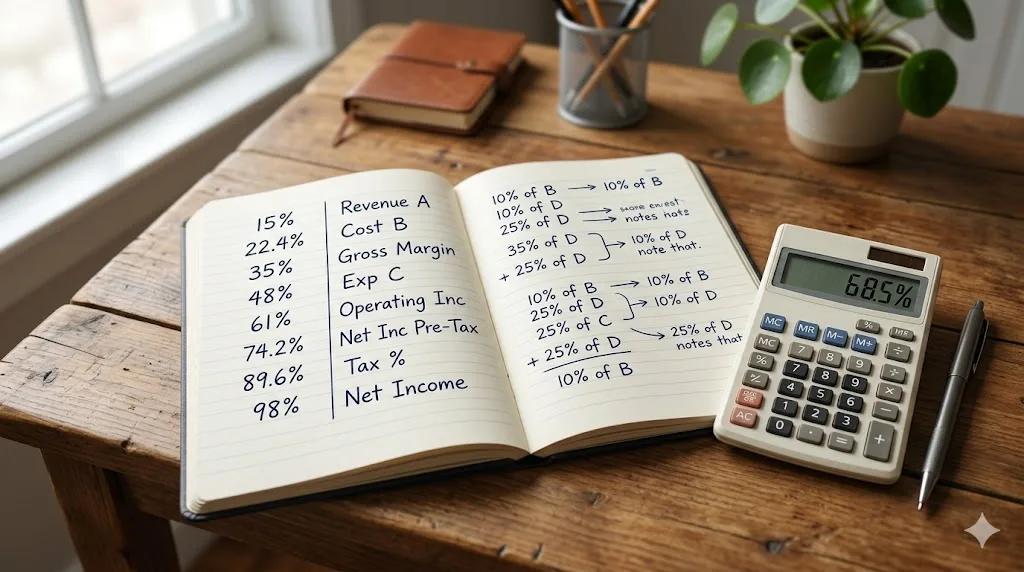 15% Revenue A
22.4% Cost B
35% Gross Margin
48% Exp C
61% Operating Inc
74.2% Net Inc Pre-Tax
89.6% Tax %
98% Net Income
10% of B → 10% of B
10% of D
25% of D notes
35% of D 10% of D
+ 25% of D note that.
10% of B → 10% of B
25% of D 10% of D
25% of C
+ 25% of D 25% of D
notes that
10% of B
68.5%
MC MR M- M+
%
7 8 9 ÷
% 7 8 9 ×
4 5 6 −
1 2 3
AC 0 . = +